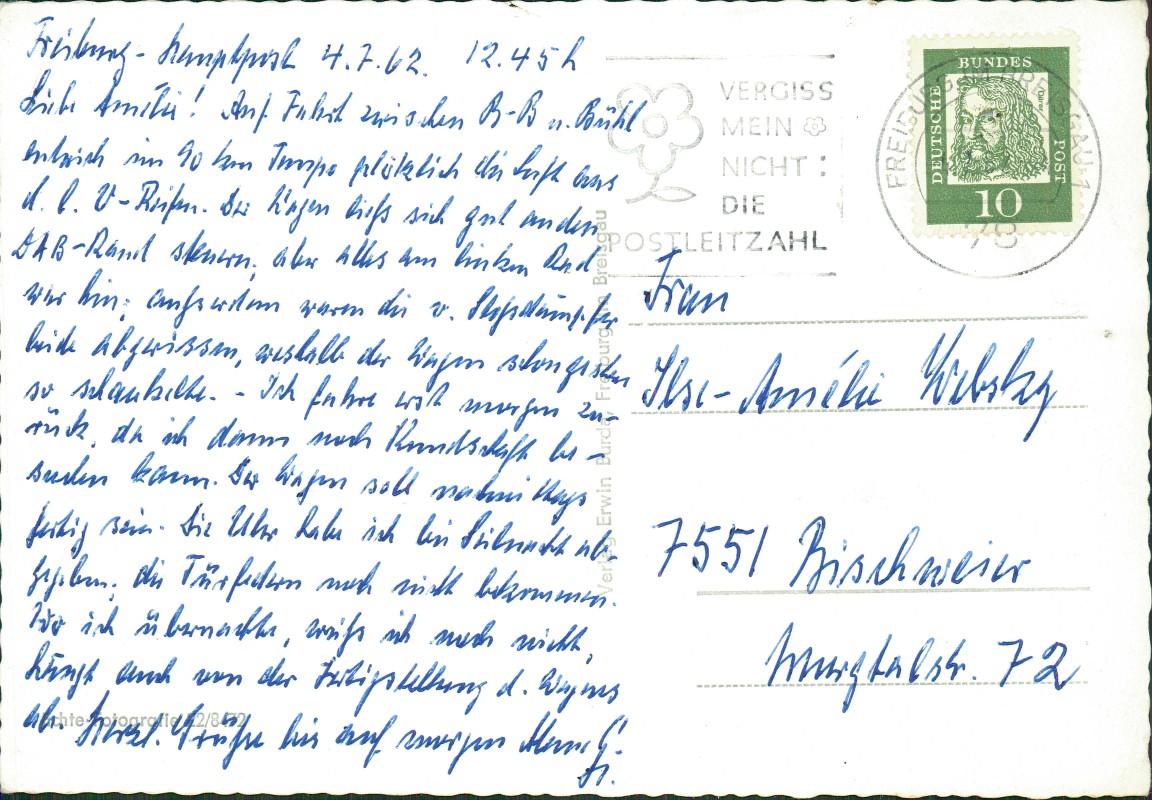 Freiburg - Hauptpost 4.7.62. 12.45 h
Liebe Amélie! Auf Fahrt zwischen B-B u. Bühl
entwich im 90 km Tempo plötzlich die Luft aus
d. l. V-Reifen. Der Wagen ließ sich gut an den
DAB-Rand steuern, aber alles am linken Rad
war hin; außerdem waren die v. Stoßdämpfer
beide abgerissen, weshalb der Wagen schon gestern
so schaukelte. - Ich fahre erst morgen zu-
rück, da ich dann noch Kundschaft be-
suchen kann. Der Wagen soll nachmittags
fertig sein. Die Uhr habe ich bei abge-
geben; die Türfedern noch nicht bekommen.
Wo ich übernachte, weiß ich noch nicht,
hängt auch von der Fertigstellung d. Wagens
ab. Herzl. Grüße bis auf morgen
Echte Fotografie 22/8472
Verlag Erwin Burda, Freiburg im Breisgau
VERGISS
MEIN
NICHT:
DIE
POSTLEITZAHL
FREIBURG IM BREISGAU 1
78
DEUTSCHE BUNDES POST
10
Frau
Ilse-Amélie Websky
7551 Bischweier
Murgtalstr. 72